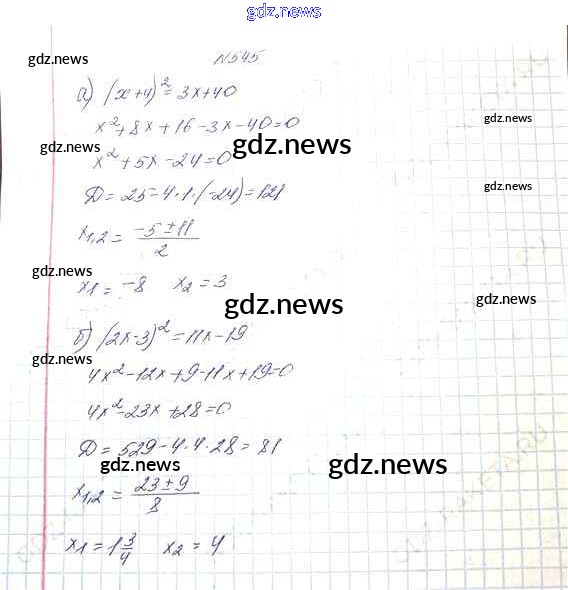 gdz.news
№545
gdz.news
а) (x+4)² = 3x+40
x²+8x+16-3x-40=0
gdz.news
gdz.news
gdz.news
x²+5x-24=0
gdz.news
Д = 25-4·1·(-24)=121
x1,2 = (-5±11)/2
gdz.news
x1 = -8 x2 = 3
gdz.news
gdz.news
б) (2x-3)² = 11x-19
gdz.news
4x²-12x+9-11x+19=0
4x²-23x+28=0
Д = 529-4·4·28=81
gdz.news
gdz.news
x1,2 = (23±9)/8
x1 = 1 3/4 x2 = 4